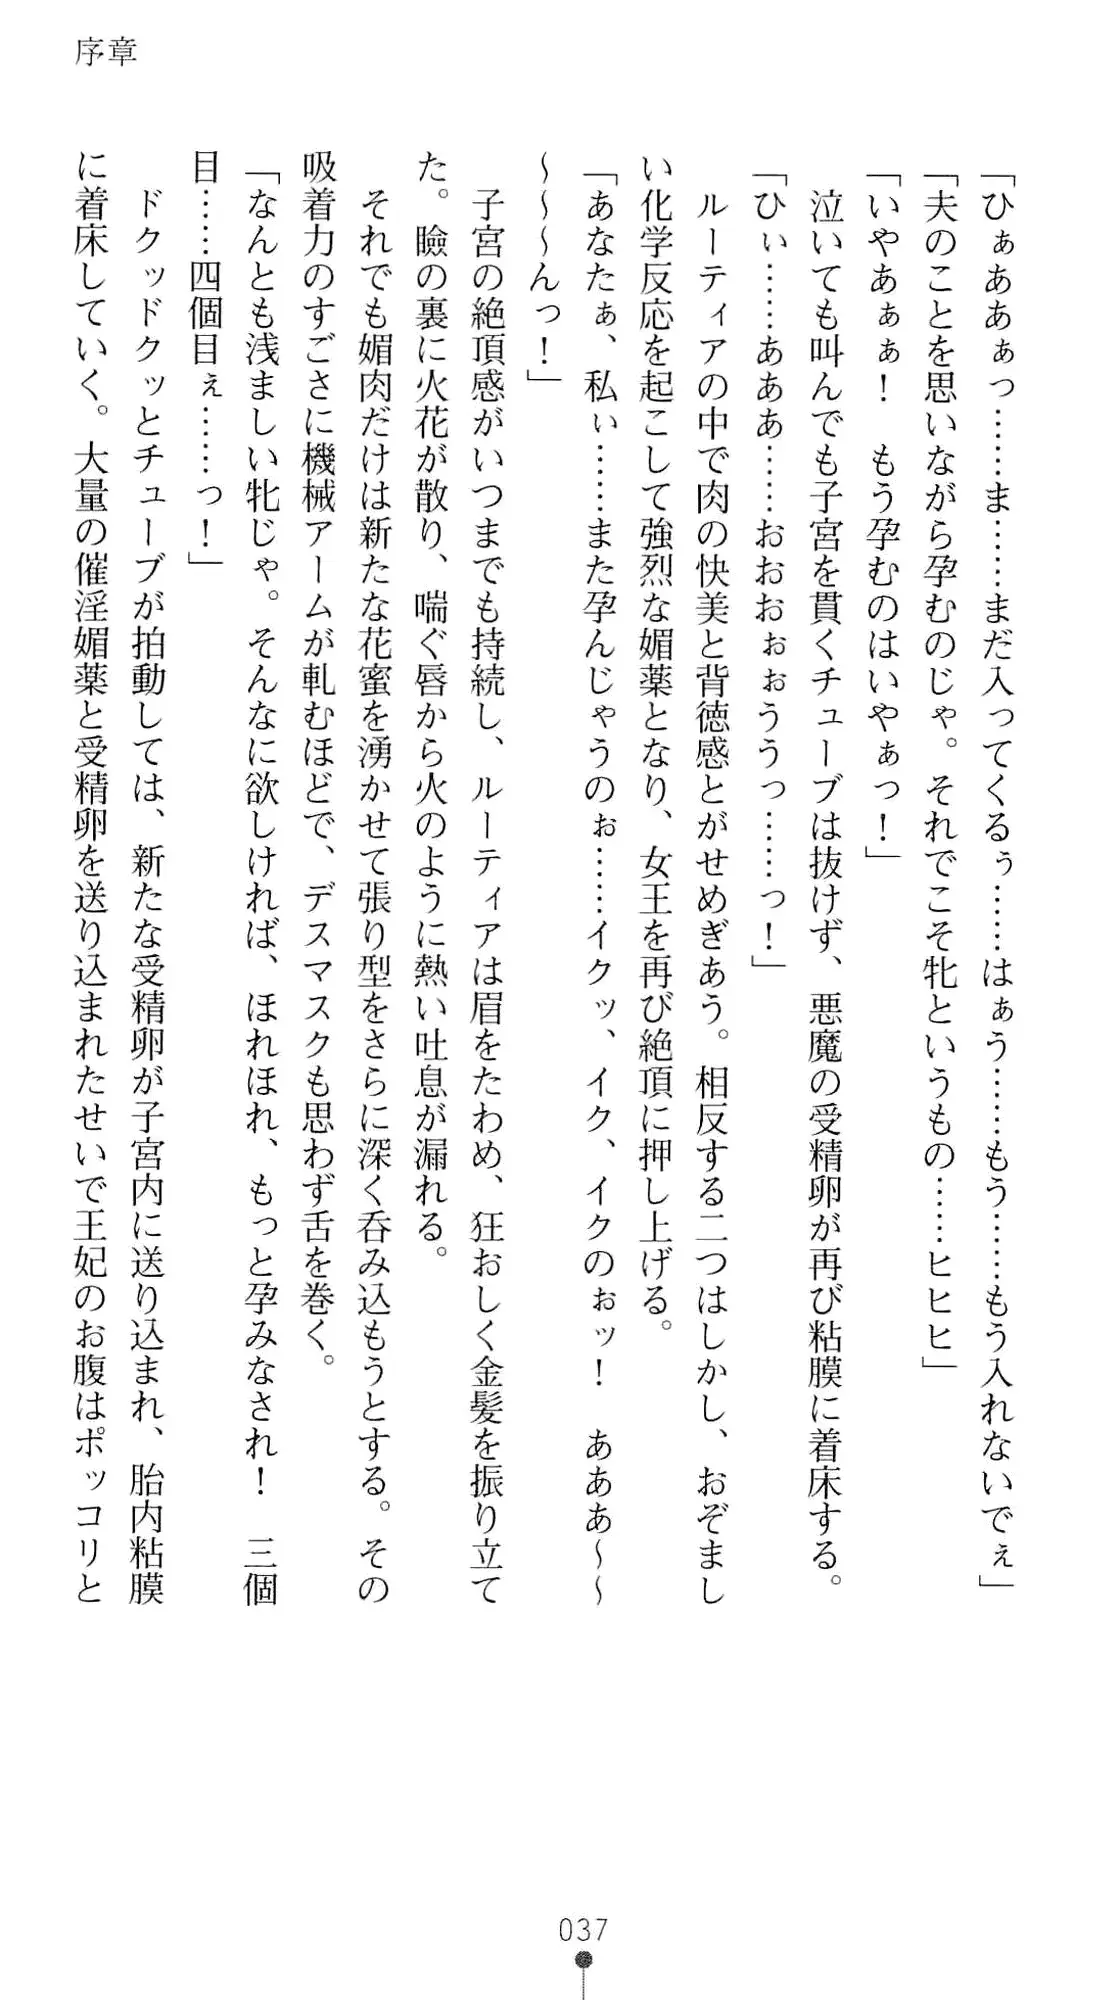 序章
「ひぁああぁっ……ま……まだ入ってくるぅ……はぁう……もう……もう入れないでぇ」
「夫のことを思いながら孕むのじゃ。それでこそ牝というもの……ヒヒヒ」
「いやあぁぁ！　もう孕むのはいやぁっ！」
泣いても叫んでも子宮を貫くチューブは抜けず、悪魔の受精卵が再び粘膜に着床する。
「ひぃ……あああ……おおおぉぉううっ……っ！」
ルーティアの中で肉の快美と背徳感とがせめぎあう。相反する二つはしかし、おぞまし
い化学反応を起こして強烈な媚薬となり、女王を再び絶頂に押し上げる。
「あなたぁ、私ぃ……また孕んじゃうのぉ……イクッ、イク、イクのぉッ！　あああ～～
～～～んっ！」
子宮の絶頂感がいつまでも持続し、ルーティアは眉をたわめ、狂おしく金髪を振り立て
た。瞼の裏に火花が散り、喘ぐ唇から火のように熱い吐息が漏れる。
それでも媚肉だけは新たな花蜜を湧かせて張り型をさらに深く呑み込もうとする。その
吸着力のすごさに機械アームが軋むほどで、デスマスクも思わず舌を巻く。
「なんとも浅ましい牝じゃ。そんなに欲しければ、ほれほれ、もっと孕みなされ！　三個
目……四個目ぇ……っ！」
ドクッドクッとチューブが拍動しては、新たな受精卵が子宮内に送り込まれ、胎内粘膜
に着床していく。大量の催淫媚薬と受精卵を送り込まれたせいで王妃のお腹はポッコリと
037